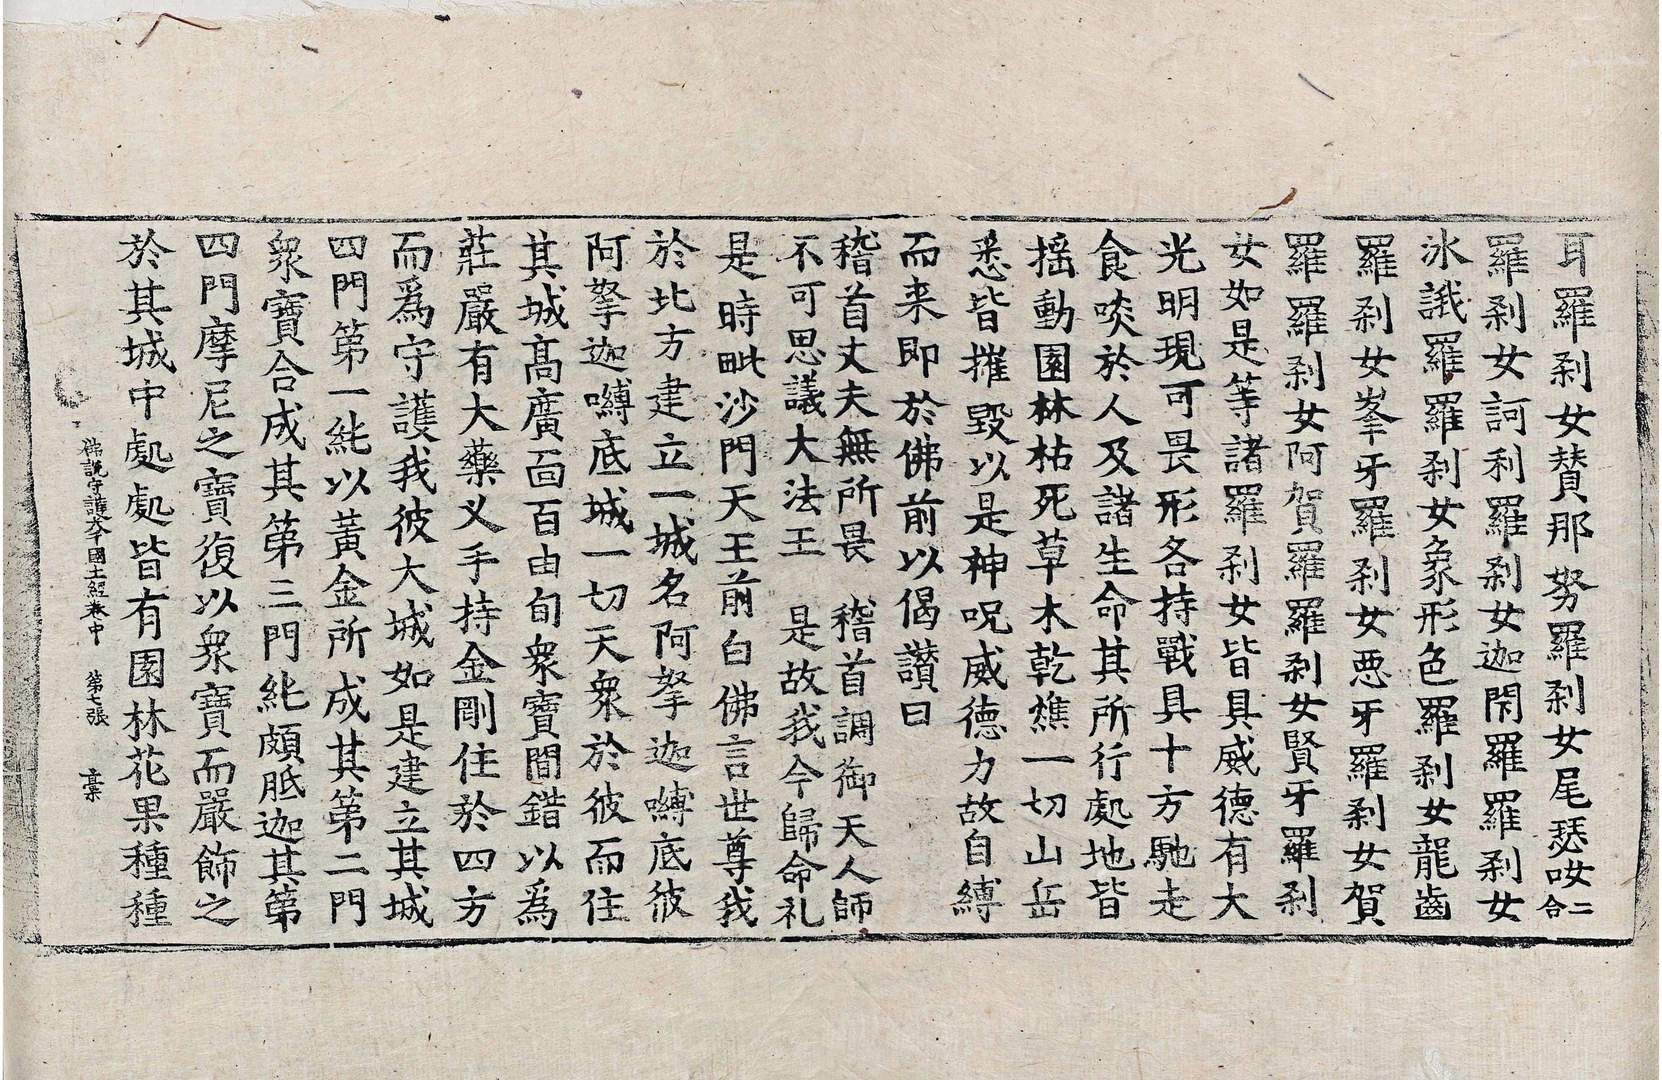 耳羅刹女赞那努羅刹女尾瑟吹二合
羅刹女訶利羅刹女迦閇羅羅刹女
冰誐羅羅刹女象形色羅刹女龍齒
羅刹女峯牙羅刹女恶牙羅刹女賀
羅羅刹女阿賀羅羅刹女賢牙羅刹
女如是等諸羅刹女皆具威德有大
光明現可畏形各持戰具十方馳走
食啖於人及諸生命其所行處地皆
揺動園林枯死草木乾燋一切山岳
悉皆摧毀以是神呪威德力故自縛
而来即於佛前以偈讃曰
稽首丈夫無所畏 稽首調御天人師
不可思議大法王 是故我今歸命礼
是時毗沙門天王前白佛言世尊我
於北方建立一城名阿拏迦嚩底彼
阿拏迦嚩底城一切天衆於彼而住
其城髙廣面百由旬衆寶間錯以爲
莊嚴有大藥叉手持金剛住於四方
而爲守護我彼大城如是建立其城
四門第一純以黃金所成其第二門
衆寶合成其第三門純頗胝迦其第
四門摩尼之寶復以衆寶而嚴飾之
於其城中處處皆有園林花果種種
佛說守護大千國土經卷中 第七張 稾